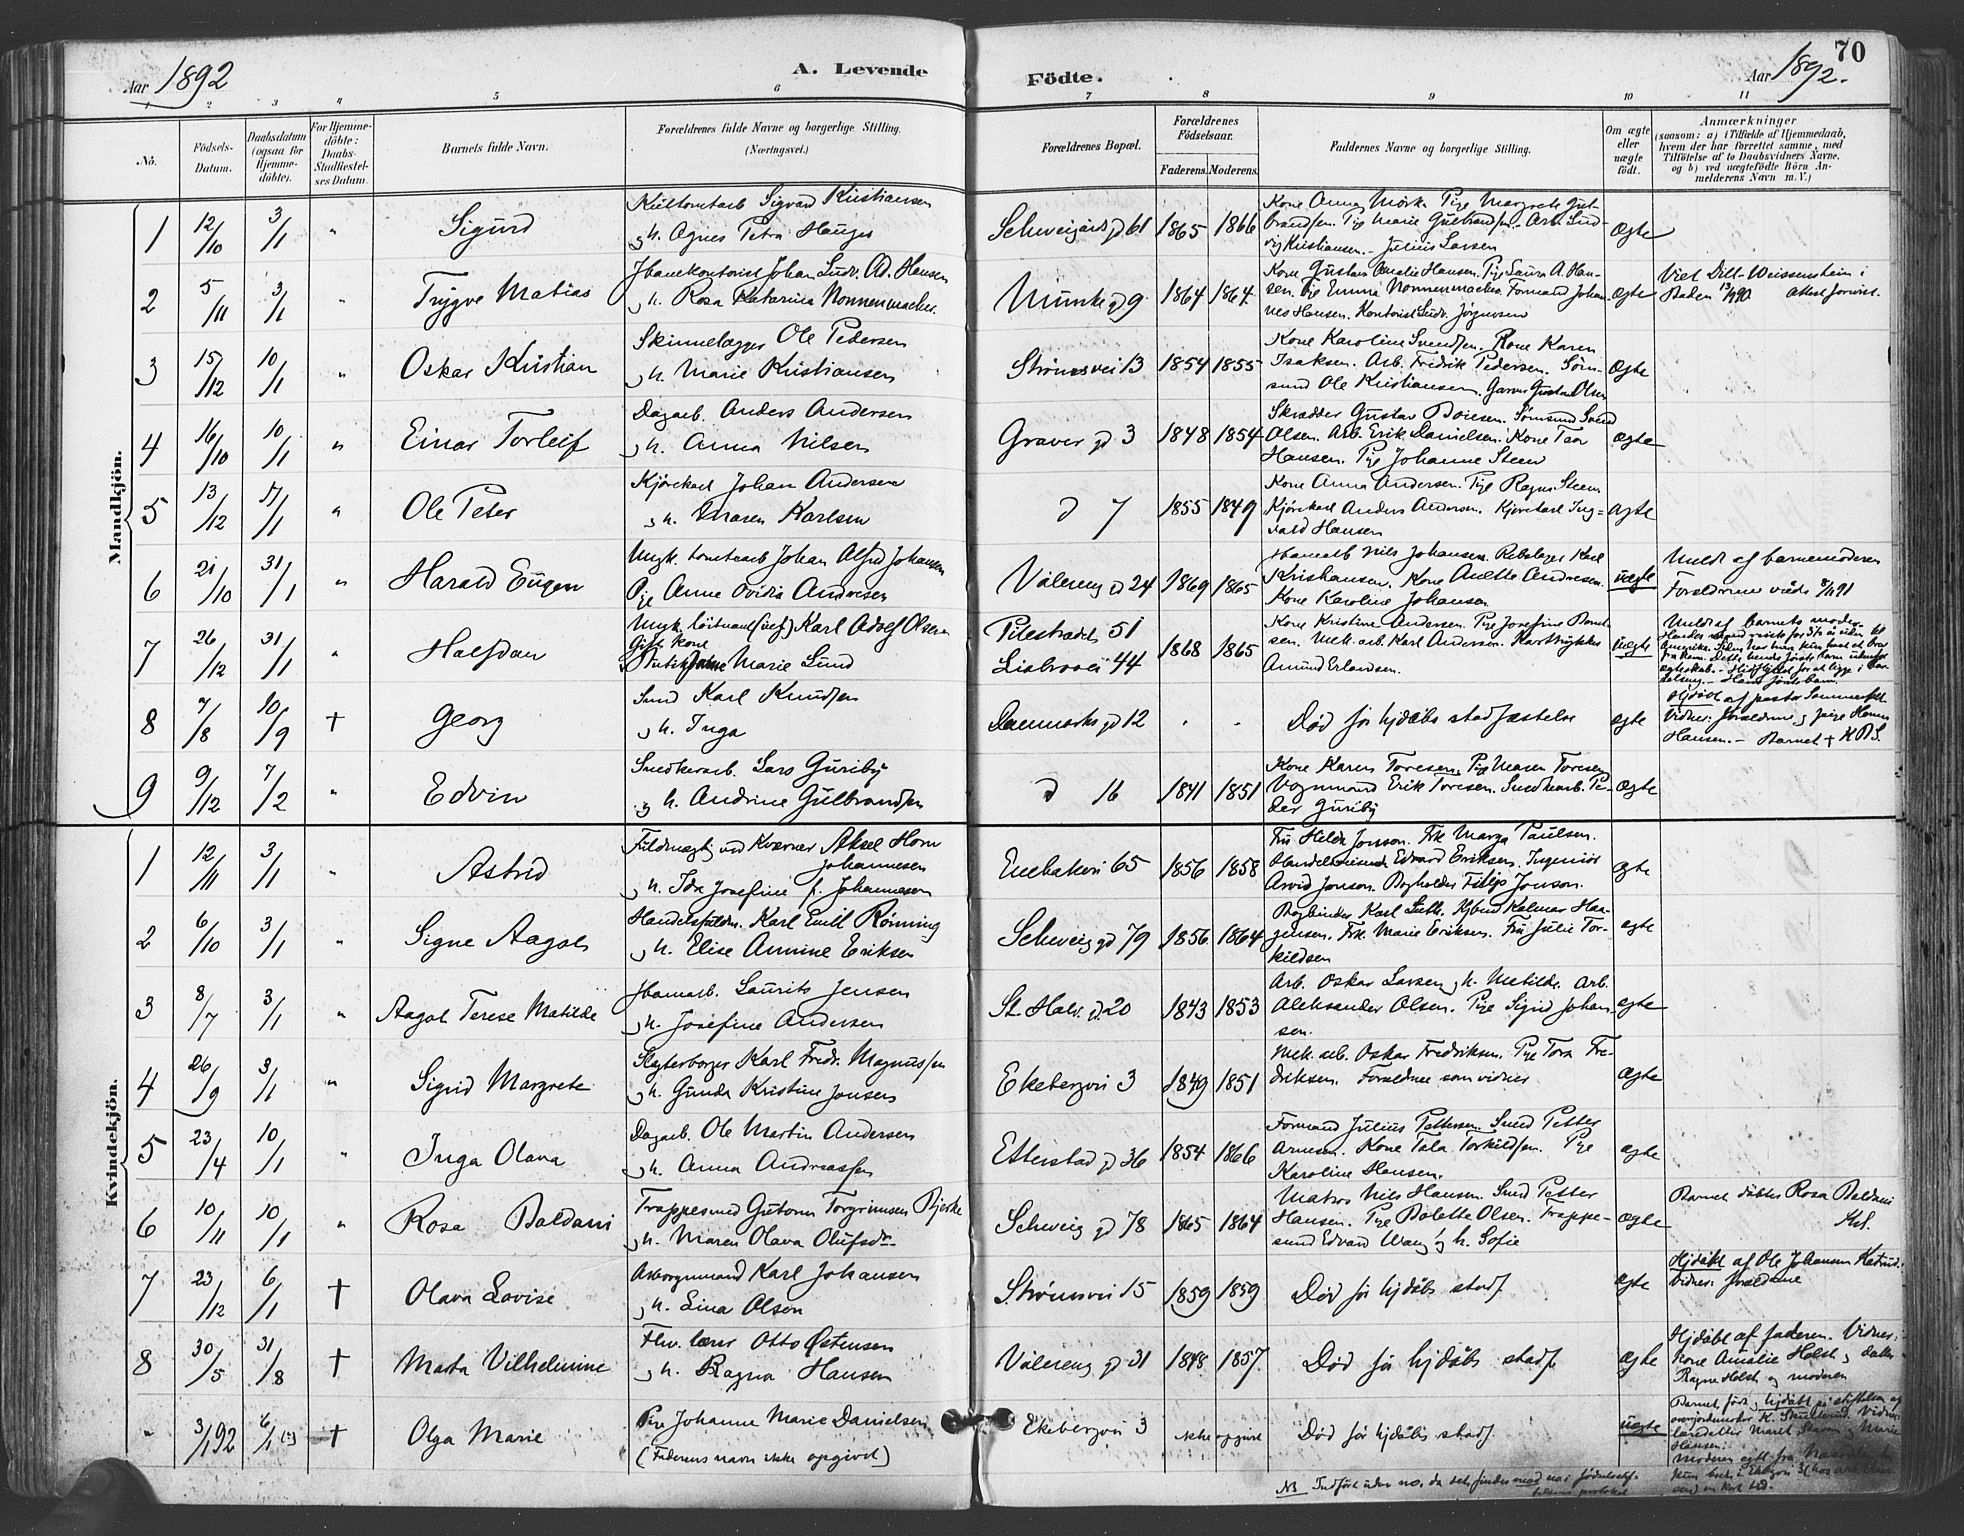 Aar 1892
A. Levende
Födte.
Aar 1892.
70
1 2 3 4 5 6 7 8 9 10 11
No.
Födsels-Datum.
Daabsdatum (ogsaa for Hjemme-döbte).
For Hjemme-döbte: Daabs-Stadfæstel-ses Datum.
Barnets fulde Navn.
Forældrenes fulde Navne og borgerlige Stilling.
(Næringsvei.)
Forældrenes Bopæl.
Forældrenes Födselsaar.
Faderens. Moderens.
Faddernes Navne og borgerlige Stilling.
Om ægte eller uægte födt.
Anmærkninger
(saasom: a) i Tilfælde af Hjemmedaab,
hvem der har forrettet samme, med
Tilföielse af to Daabsvidners Navne,
og b) ved uægtefödte Börn An-
melderens Navn m. V.)
Mandkjön.
1 12/10 3/1 " Sigurd
Kultomtarb Sigvard Kristiansen
o h. Agnes Petra Hauger
Schweigårds gd 61 1865 1866
Kone Anna Mörk. Pige Margrete Gul-
brandsen. Pig Marie Gulbrandsen. Arb. Lud-
vig Kristiansen. Julius Larsen
ægte
2 5/11 3/1 " Trygve Matias
Jbanekontorist Johan Ludv. Ad. Hansen
o h. Rosa Katarina Nonnenmacher
Munke gd 9 1864 1864
Kone Gustava Amalie Hansen. Pige Laura A. Han-
sen. Pige Emma Nonnenmacher Formand Johan-
nes Hansen. Kontorist Ludv. Jörgensen
ægte
Viet Dill-Weissenstein i
Baden 13/1 90. Attest forevist.
3 15/12 10/1 " Oskar Kristian
Skinnelægger Ole Pedersen
o h. Marie Kristiansen
Strömsvei 13 1854 1855
Kone Karoline Svendsen. Kone Karen
Isaksen. Arb. Fredrik Pedersen. Söm-
smed Ole Kristiansen. Garver Gustav Olsen
ægte
4 16/10 10/1 " Einar Torleif
Dagarb. Anders Andersen
o h. Anna Nilsen
Graver gd 3 1848 1854
Skrædder Gustav Boiesen. Sömsmed Svend
Olsen. Arb. Erik Danielsen. Kone Tea
Hansen. Pige Johanne Steen
ægte
5 13/12 17/1 " Ole Peter
Kjörekarl Johan Andersen
o h. Maren Karlsen
d 7 1855 1849
Kone Anna Andersen. Pige Ragna Steen
Kjörekarl Anders Andersen. Kjörekarl Ing-
vald Hansen
ægte
6 21/10 31/1 " Harald Eugen
Ungk. tomtearb Johan Alfred Johansen
Pige Anne Ovidia Andresen
Vålereng gd 24 1869 1865
Jbanearb Nils Johansen. Rebslager Karl
Kristiansen. Kone Anette Andresen.
Kone Karoline Johansen
uægte
Meldt af barnemoderen
Forældrene viede 8/11 91
7 26/12 31/1 " Halfdan
Ungk. löitnant (inf) Karl Adolf Olsen
Gift kone
Marie Lund
Pilestrædet 51
Liabrovei 44
1868 1865
Kone Kristine Andersen. Pige Josefine
sen. Mek. arb. Karl Andersen. Karttrykker
Amund Erlandsen.
uægte
Meldt af barnets moder.
8 7/8 10/9 † Georg
Smed Karl Knudsen
o h. Inga
Danmarks gd 12 . .
Död för hjdåbs stadfæstelse
ægte
Hjdöbt af pastor Sommerfelt
Vidner: forældrene og pige Hanna
Hansen. – Barnet †
9 9/12 7/2 " Edvin
Snedkerarb. Lars Guriby
o h. Andrine Gulbrandsen
d 16 1841 1851
Kone Karen Toresen. Pige Maren Toresen
Vognmand Erik Toresen. Snedkerarb. Pe-
der Guriby
ægte
Kvindekjön.
1 12/11 3/1 " Astrid
Fuldmægtig ved Kværner Aksel Horn
Johannesen
o h. Ida Josefine f. Johannesen
Enebakvei 65 1856 1858
Fru Helda Jonson. Frk Marga Paulsen.
Handelsreisende Edvard Eriksen. Ingeniör
Arvid Jonson. Bogholder Filip Jonson.
ægte
2 6/10 3/1 " Signe Aagot
Handelsfuldm. Karl Emil Rönning
o h. Elise Annine Eriksen
Schweig gd 79 1856 1864
Bogbinder Karl Luth. Kjbmd Kalmar Haa-
gensen. Frk. Marie Eriksen. Fru Julie Tor-
kildsen
ægte
3 8/7 3/1 " Aagot Terese Matilde
Jbanearb. Laurits Jensen
o h. Josefine Andersen
St. Halv. gd. 20 1843 1853
Arb. Oskar Larsen o h. Matilde. Arb.
Aleksander Olsen. Pige Sigrid Johan-
sen.
ægte
4 26/9 3/1 " Sigrid Margrete
Slagterborger Karl Fredr. Magnussen
o h. Gunda Kristine Jonsen
Ekebergvei 3 1849 1851
Mek. arb. Oskar Fredriksen. Pige Tora Fre-
driksen. Forældrene som vidner
ægte
5 23/4 10/1 " Inga Olava
Dagarb. Ole Martin Andersen
o h. Anna Andreassen
Etterstad gd 36 1854 1866
Formand Julius Pettersen. Smed Petter
Arnesen. Kone Tala Torkildsen. Pige
Karoline Hansen.
ægte
6 10/11 10/1 " Rosa Baldani
Trappesmed Gutorm Torgrimsen Bjerke
o h. Maren Olava Olufsdr
Schweig gd 78 1865 1864
Matros Nils Hansen. Smed Petter
Hansen. Pige Bolette Olsen. Trappe-
smed Edvard Wang o h. Sofie
ægte
Barnet döbtes Rosa Baldani
7 23/12 6/1 † Olava Lovise
Karl Johansen
o h. Lina Olsen
Strömsvei 15 1859 1859
Död för hjdåbs stadf.
ægte
Hjdöbt af Ole Johansen
Vidner: forældrene
8 30/5 31/8 † Marta Vilhelmine
Fhv. lærer Otto Östensen
o h. Ragna Hansen
Vålereng gd 31 1848 1857.
Död för hjdåbs stadf
ægte
Hjdöbt af faderen. Vidner:
Kone Amalie Holst og datter
Ragna Holst og moderen
" 3/1 92 6/1 (?) † Olga Marie
Pige Johanne Marie Danielsen
(Faderens navn ikke opgivet)
Ekebergvei 3 ikke opgivet
Död för hjdåbs stadf.
uægte
Barnet födt og hjdöbt på stiftelsen af
NB Indfört uden no, da det findes med no i födselsstif-
telsens protokol